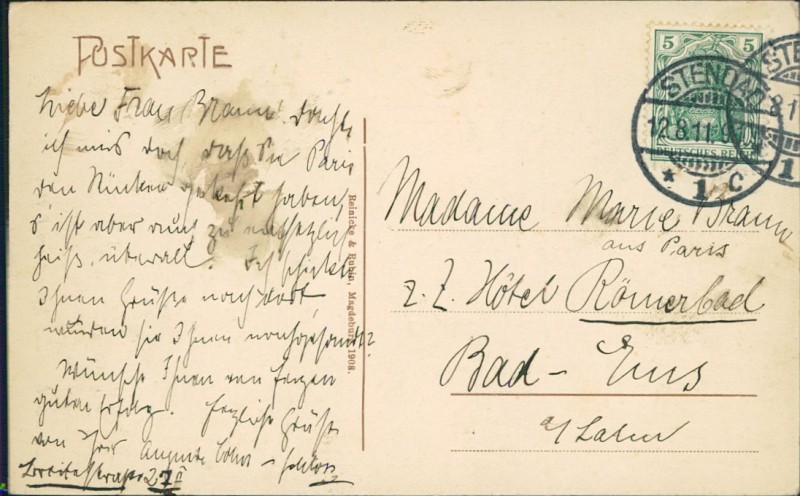 POSTKARTE
Liebe Frau Braun! dachte
ich mir's doch, dass Sie Paris
den Rücken gekehrt haben,
s' ist aber auch zu entsetzlich
heiß überall. Ich schickte
Ihnen Grüße nach dort,
wurden sie Ihnen nachgesandt?
Wünsche Ihnen von Herzen
guten Erfolg. Herzliche Grüße
von Ihrer Auguste Cohn -
Breitestrasse 27 II
Reinicke & Rubin, Magdeburg 1908.
5 5
DEUTSCHES REICH
STENDAL
12.8.11.9
* 1 c
STE
8.1
1
Madame Marie Braun
aus Paris
z. Z. Hôtel Römerbad
Bad - Ems
a/ Lahn